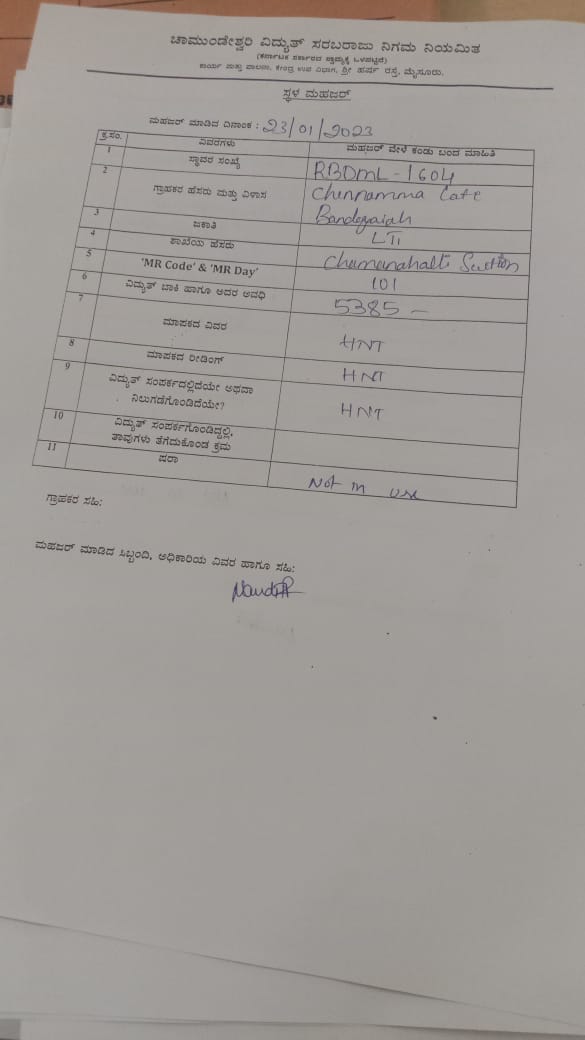 ಚಾಮುಂಡೇಶ್ವರಿ ವಿದ್ಯುತ್ ಸರಬರಾಜು ನಿಗಮ ನಿಯಮಿತ
(ಕರ್ನಾಟಕ ಸರ್ಕಾರದ ಸ್ವಾಮ್ಯಕ್ಕೆ ಒಳಪಟ್ಟಿದೆ)
ಕಾರ್ಯ ಮತ್ತು ಪಾಲನಾ, ಕೇಂದ್ರ ಉಪ ವಿಭಾಗ, ಶ್ರೀ ಹರ್ಷ ರಸ್ತೆ, ಮೈಸೂರು.
ಸ್ಥಳ ಮಹಜರ್
ಮಹಜರ್ ಮಾಡಿದ ದಿನಾಂಕ : 23/01/2023
ಕ್ರ.ಸಂ. ವಿವರಗಳು ಮಹಜರ್ ವೇಳೆ ಕಂಡು ಬಂದ ಮಾಹಿತಿ
1 ಸ್ಥಾವರ ಸಂಖ್ಯೆ RBDML-1604
2 ಗ್ರಾಹಕರ ಹೆಸರು ಮತ್ತು ವಿಳಾಸ Chennamma Late
3 ಜಕಾತಿ LTi
4 ಶಾಖೆಯ ಹೆಸರು Section
5 'MR Code' & 'MR Day' 101
6 ವಿದ್ಯುತ್ ಬಾಕಿ ಹಾಗೂ ಅದರ ಅವಧಿ 5385 —
7 ಮಾಪಕದ ವಿವರ HNT
8 ಮಾಪಕದ ರೀಡಿಂಗ್ HNT
9 ವಿದ್ಯುತ್ ಸಂಪರ್ಕದಲ್ಲಿದೆಯೇ ಅಥವಾ
ನಿಲುಗಡೆಗೊಂಡಿದೆಯೇ? HNT
10 ವಿದ್ಯುತ್ ಸಂಪರ್ಕಗೊಂಡಿದ್ದಲ್ಲಿ,
ತಾವುಗಳು ತೆಗೆದುಕೊಂಡ ಕ್ರಮ
11 ಷರಾ Not in use
ಗ್ರಾಹಕರ ಸಹಿ:
ಮಹಜರ್ ಮಾಡಿದ ಸಿಬ್ಬಂದಿ, ಅಧಿಕಾರಿಯ ವಿವರ ಹಾಗೂ ಸಹಿ: